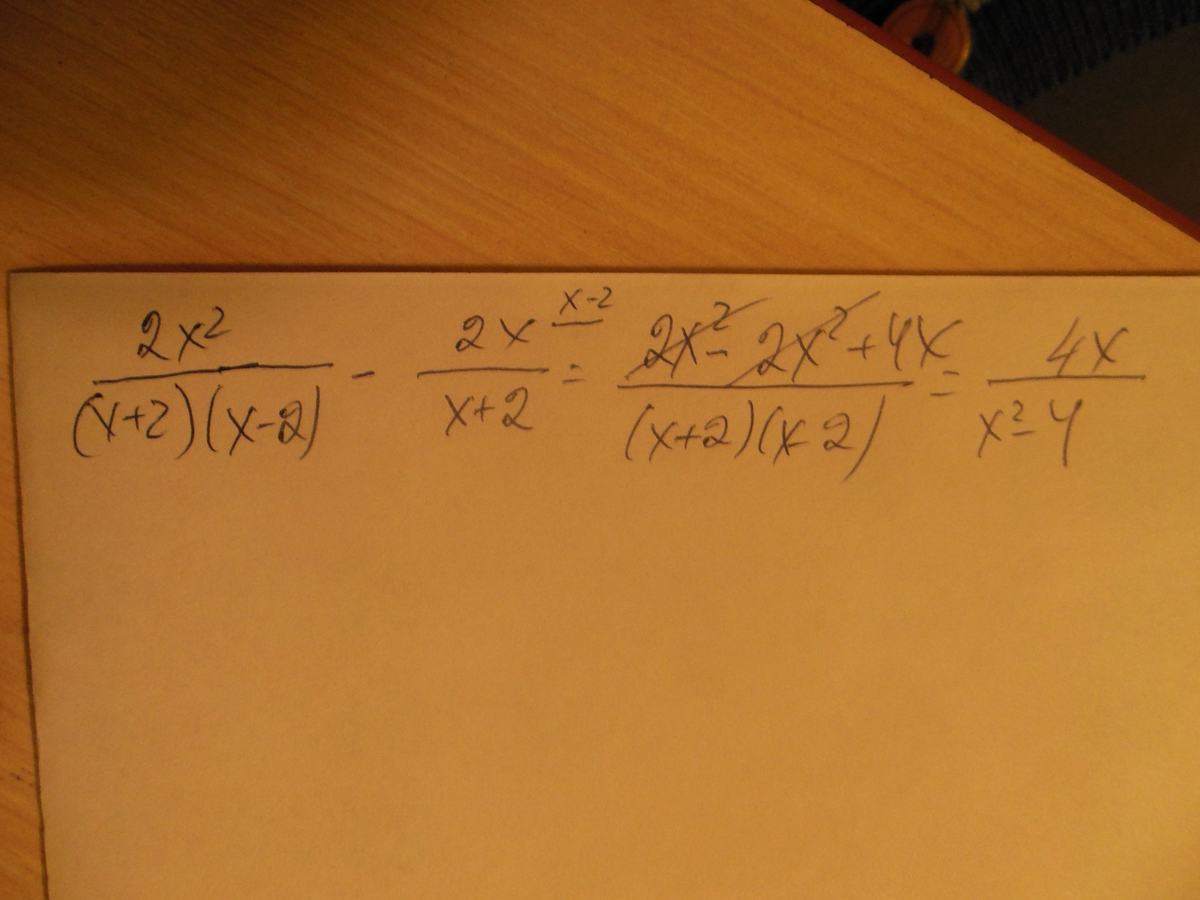 2x²/((x+2)(x-2)) - 2x/(x+2) x-2 = (2x² - 2x² + 4x)/((x+2)(x-2)) = 4x/(x²-4)